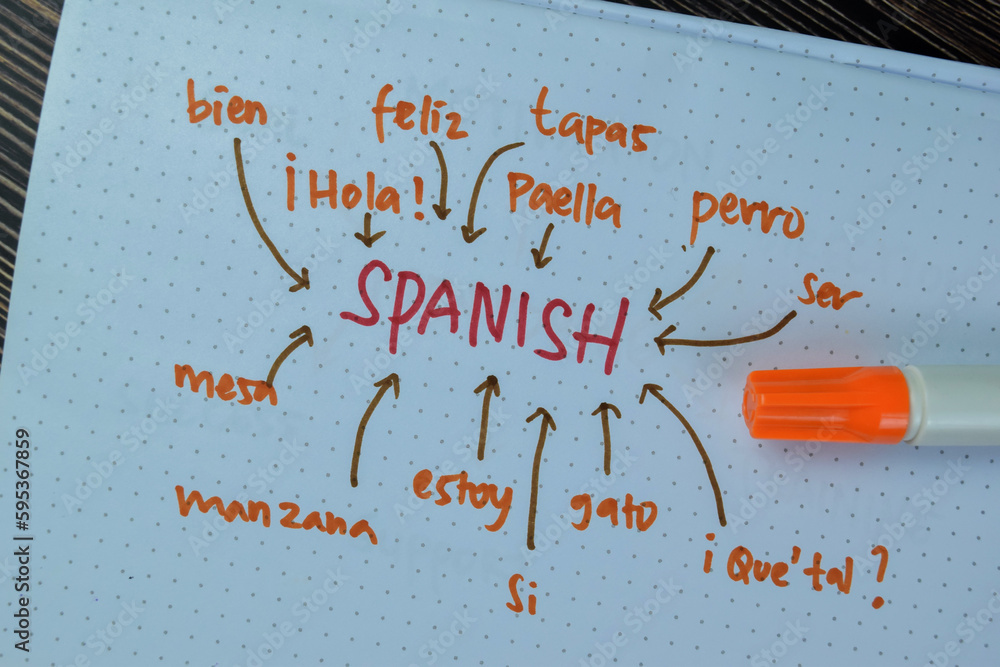 bien
feliz
tapas
¡Hola!
Paella
perro
ser
SPANISH
mesa
manzana
estoy
gato
Si
¡Que'tal?
Adobe Stock | #595367859